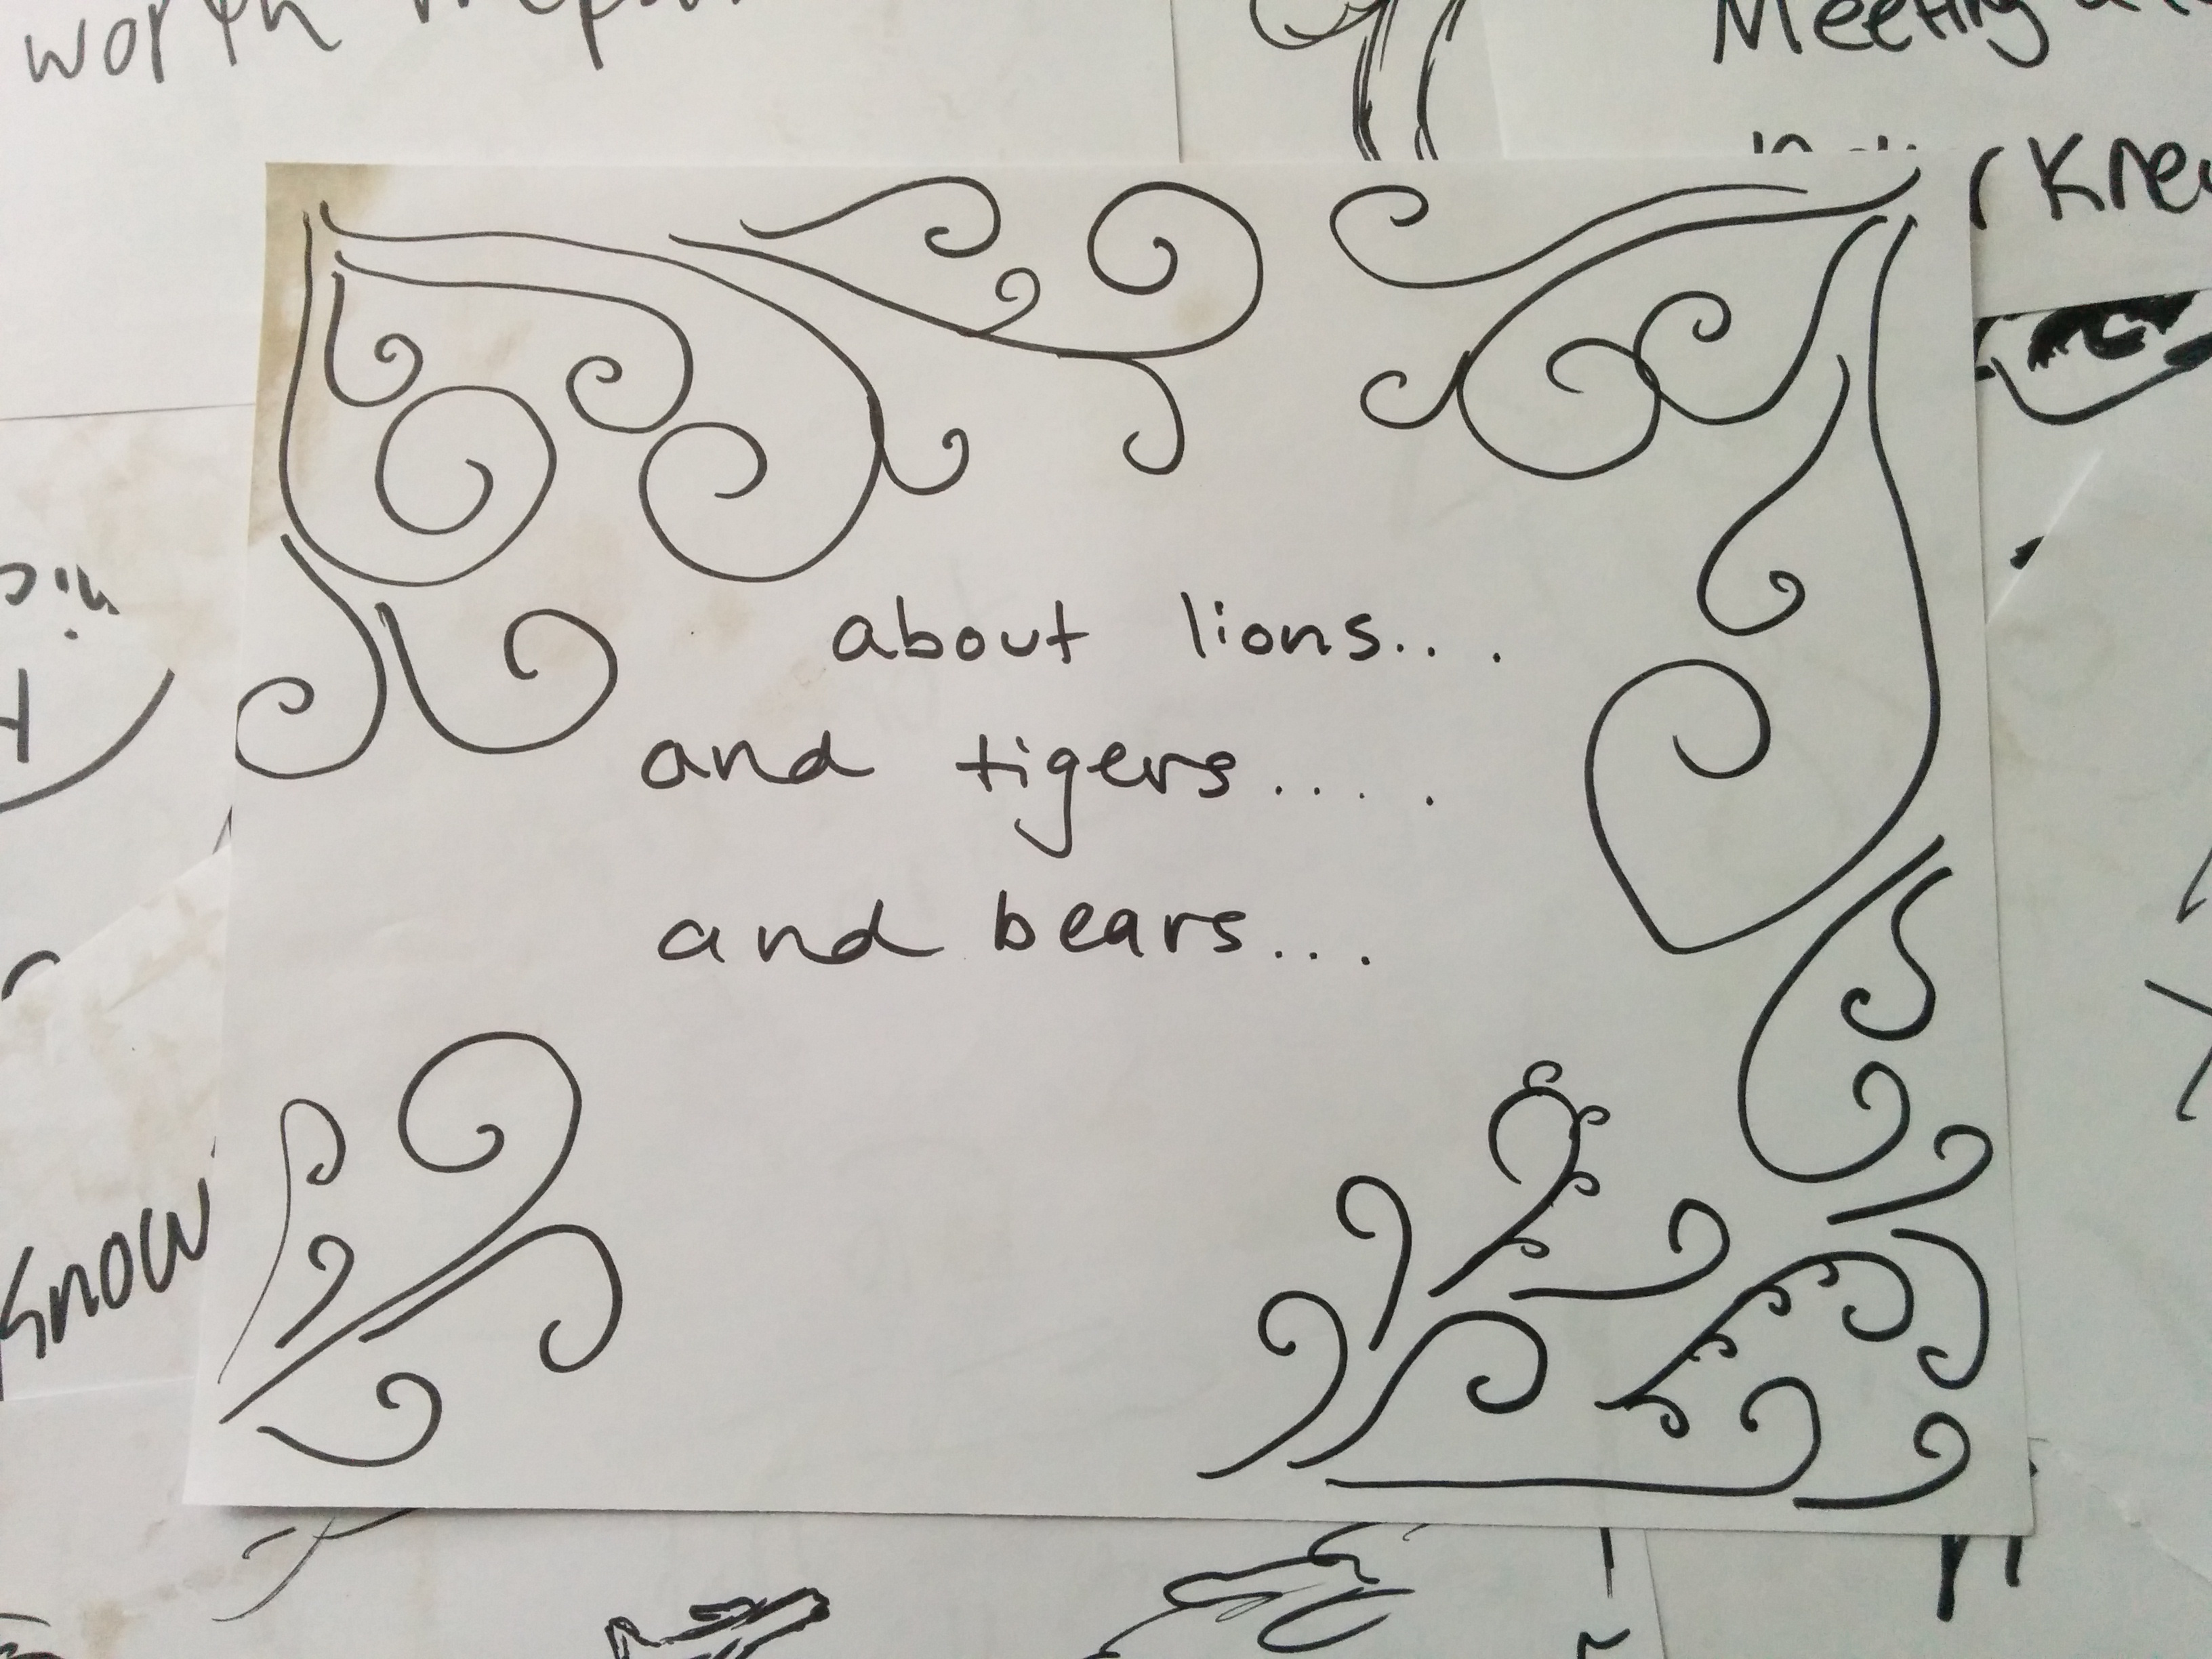 worth
Meeting
Knew
about lions...
and tigers.... .
and bears...
Know